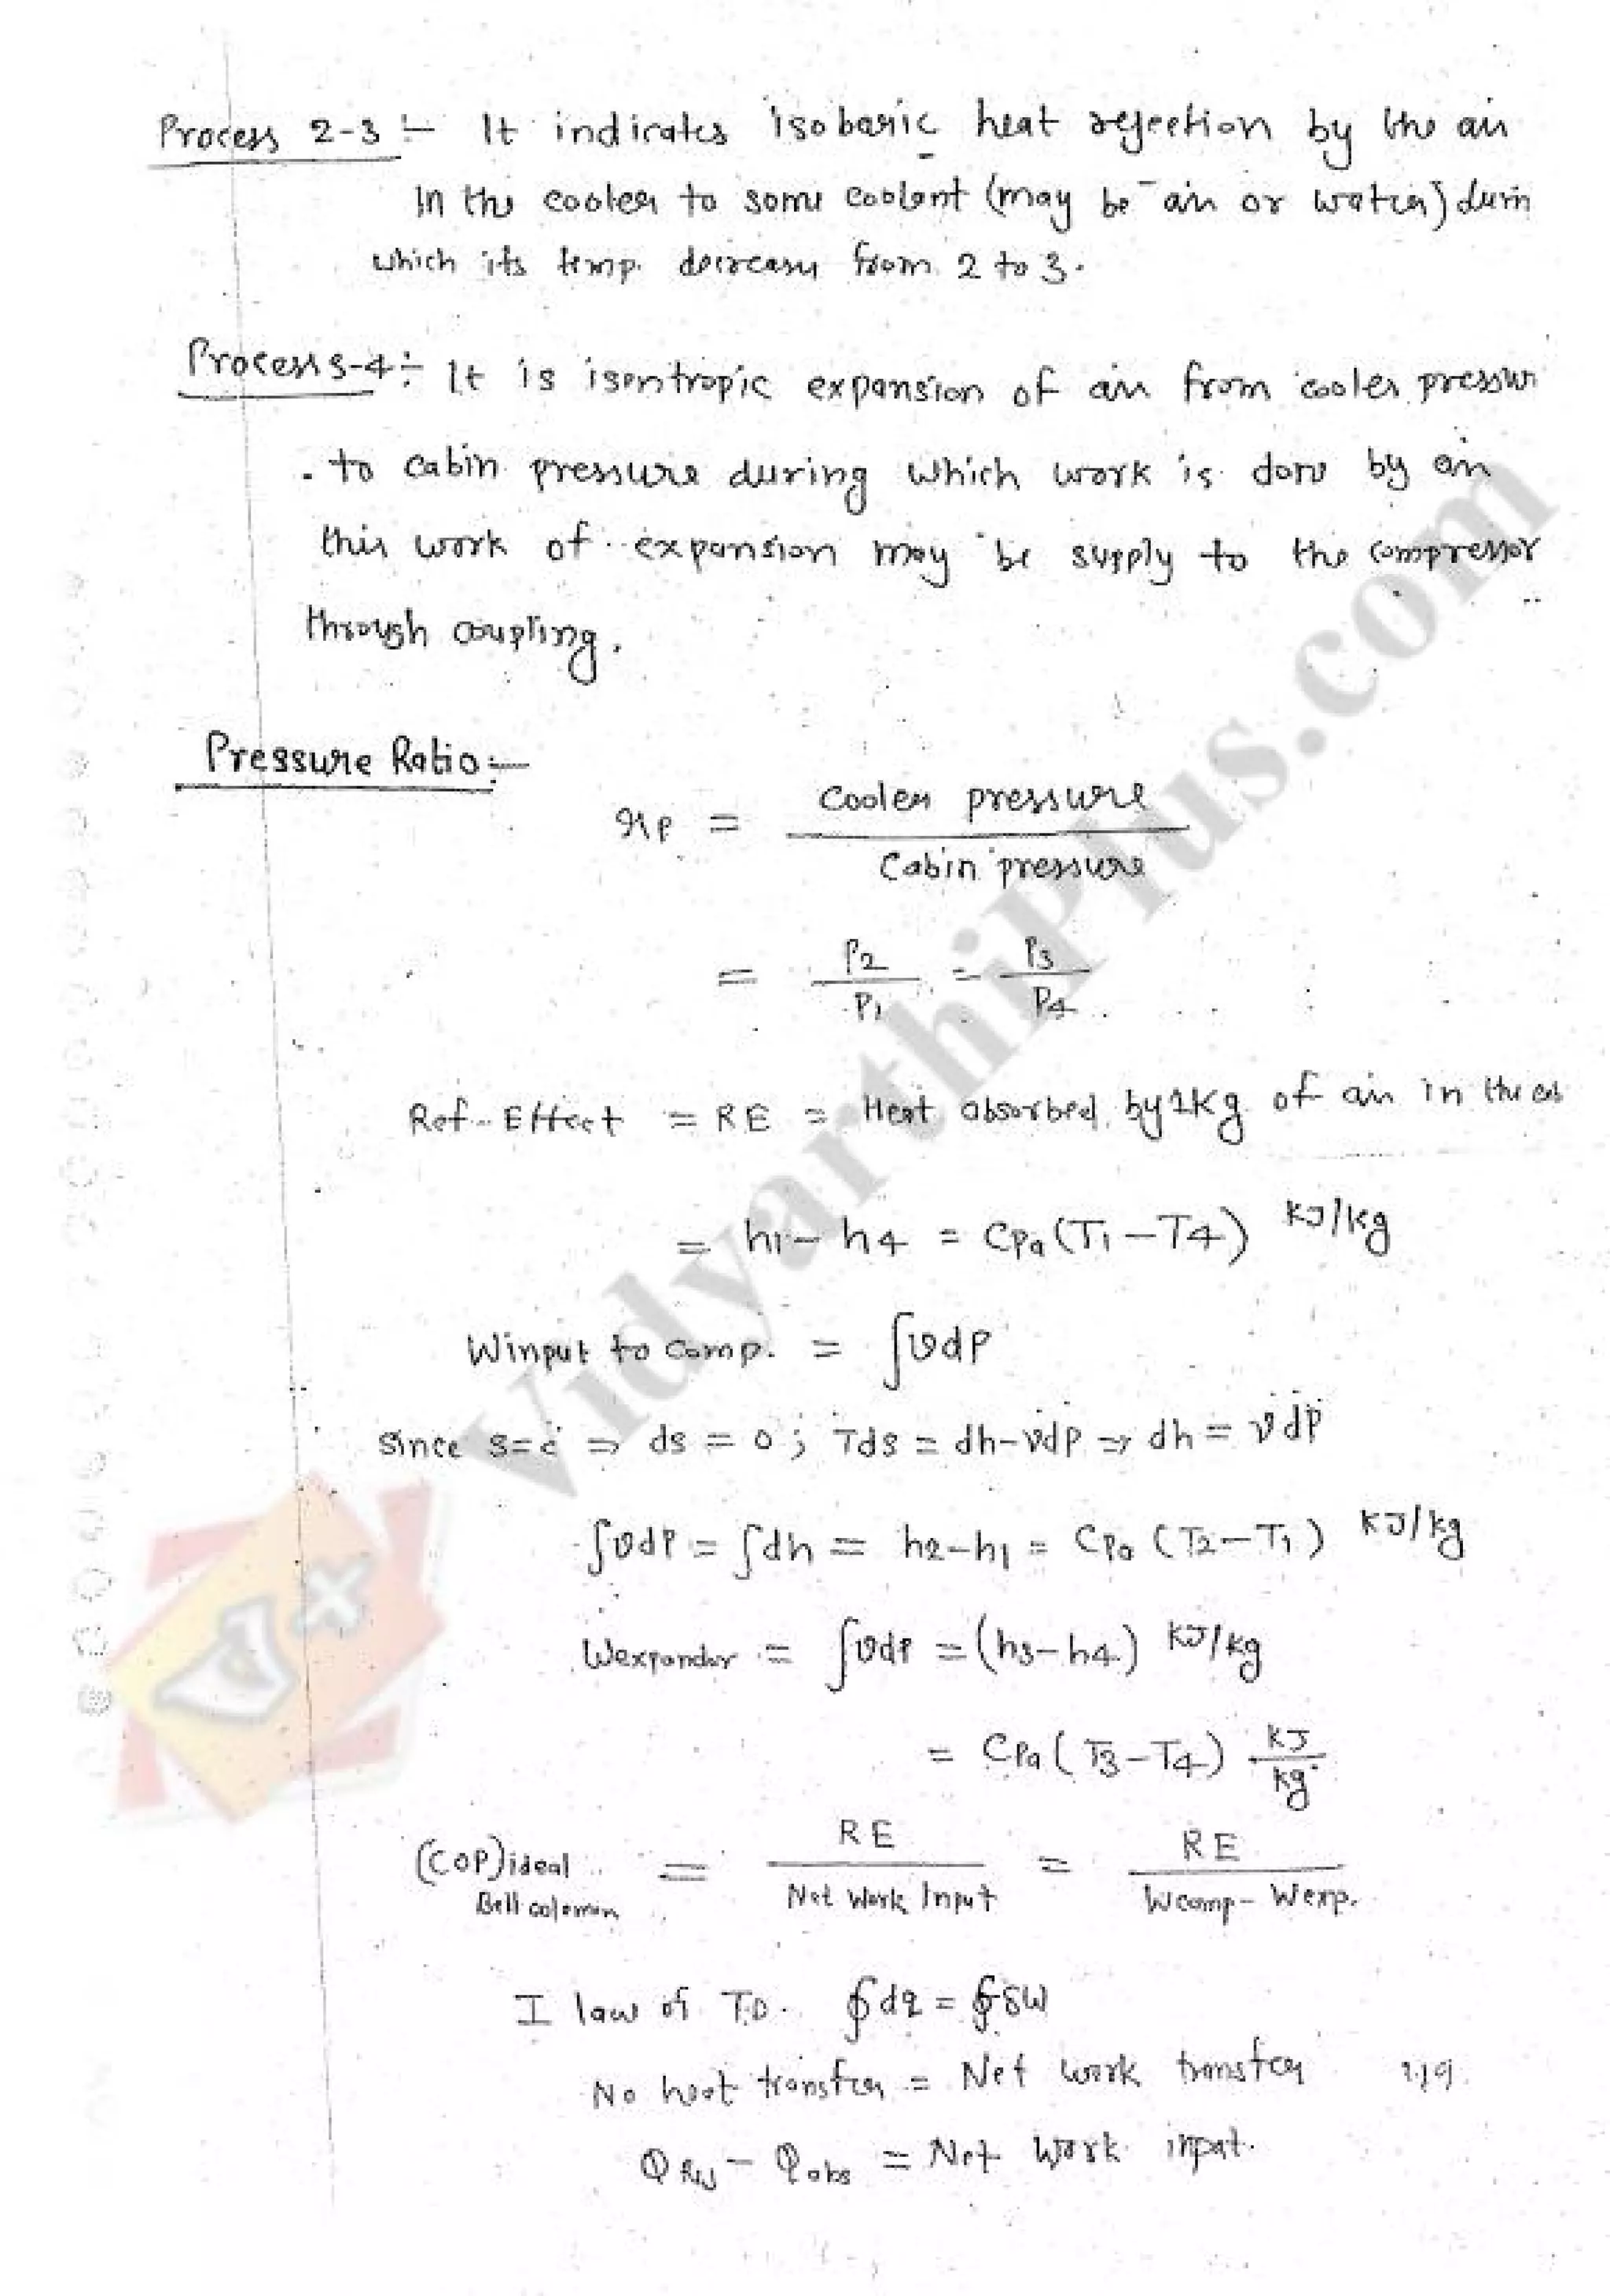 Process 2-3 :- It indicates isobaric heat rejection by the air
In the cooler to some coolant (may be air or water) durin
which its temp. decreases from 2 to 3.
Process 3-4 :- It is isentropic expansion of air from cooler pressur
to cabin pressure during which work is done by air
this work of expansion may be supply to the compressor
through coupling.
Pressure Ratio :-
rp = Cooler pressure / Cabin pressure
= P2/P1 = P3/P4
Ref-Effect = RE = Heat absorbed by 1Kg of air in the
= h1 - h4 = Cpa (T1 - T4) KJ/kg
Winput to comp. = ∫vdp
Since s=c ⇒ ds = 0 ; Tds = dh - vdp ⇒ dh = vdp
∫vdp = ∫dh = h2 - h1 = Cpa (T2 - T1) KJ/kg
Wexpander = ∫vdp = (h3 - h4) KJ/kg
= Cpa (T3 - T4) KJ/kg
(COP)ideal Bell coleman = RE / Net Work Input = RE / Wcomp - Wexp.
I law of T.D. ∮dq = ∮δW
No heat transfer = Net work transfer
QRej - Qabs = Net work input.
VidyarthiPlus.com